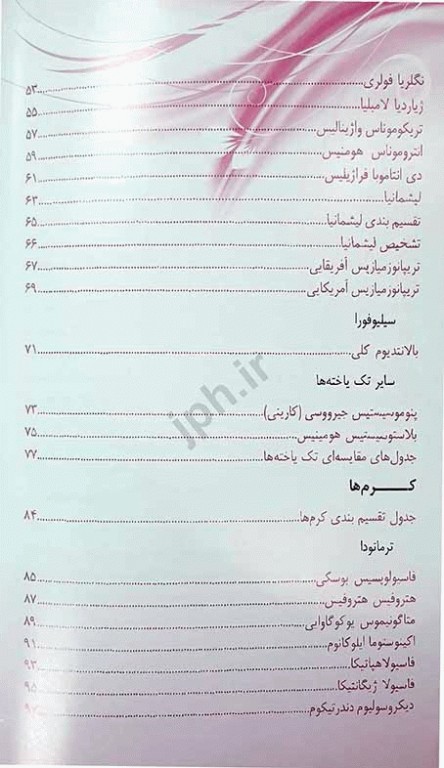 نگلریا فولری ۵۳
ژیاردیا لامبلیا ۵۵
تریکوموناس واژینالیس ۵۷
انتروموناس هومنیس ۵۹
دی انتاموبا فراژیلیس ۶۱
لیشمانیا ۶۳
تقسیم بندی لیشمانیا ۶۵
تشخیص لیشمانیا ۶۶
تریپانوزمیازیس آفریقایی ۶۷
تریپانوزمیازیس آمریکایی ۶۹
سیلیوفورا
بالانتدیوم کلی ۷۱
سایر تک یاخته‌ها
پنوموسیستیس جیرووسی (کارینی) ۷۳
بلاستوسیستیس هومینیس ۷۵
جدول‌های مقایسه‌ای تک یاخته‌ها ۷۷
کرم‌ها
جدول تقسیم بندی کرم‌ها ۸۴
ترماتودا
فاسیولوپسیس بوسکی ۸۵
هتروفیس هتروفیس ۸۷
متاگونیموس یوکوگاوایی ۸۹
اکینوستوما ایلوکانوم ۹۱
فاسیولاهپاتیکا ۹۳
فاسیولا ژیگانتیکا ۹۵
دیکروسولیوم دندرتیکوم ۹۷
jph.ir